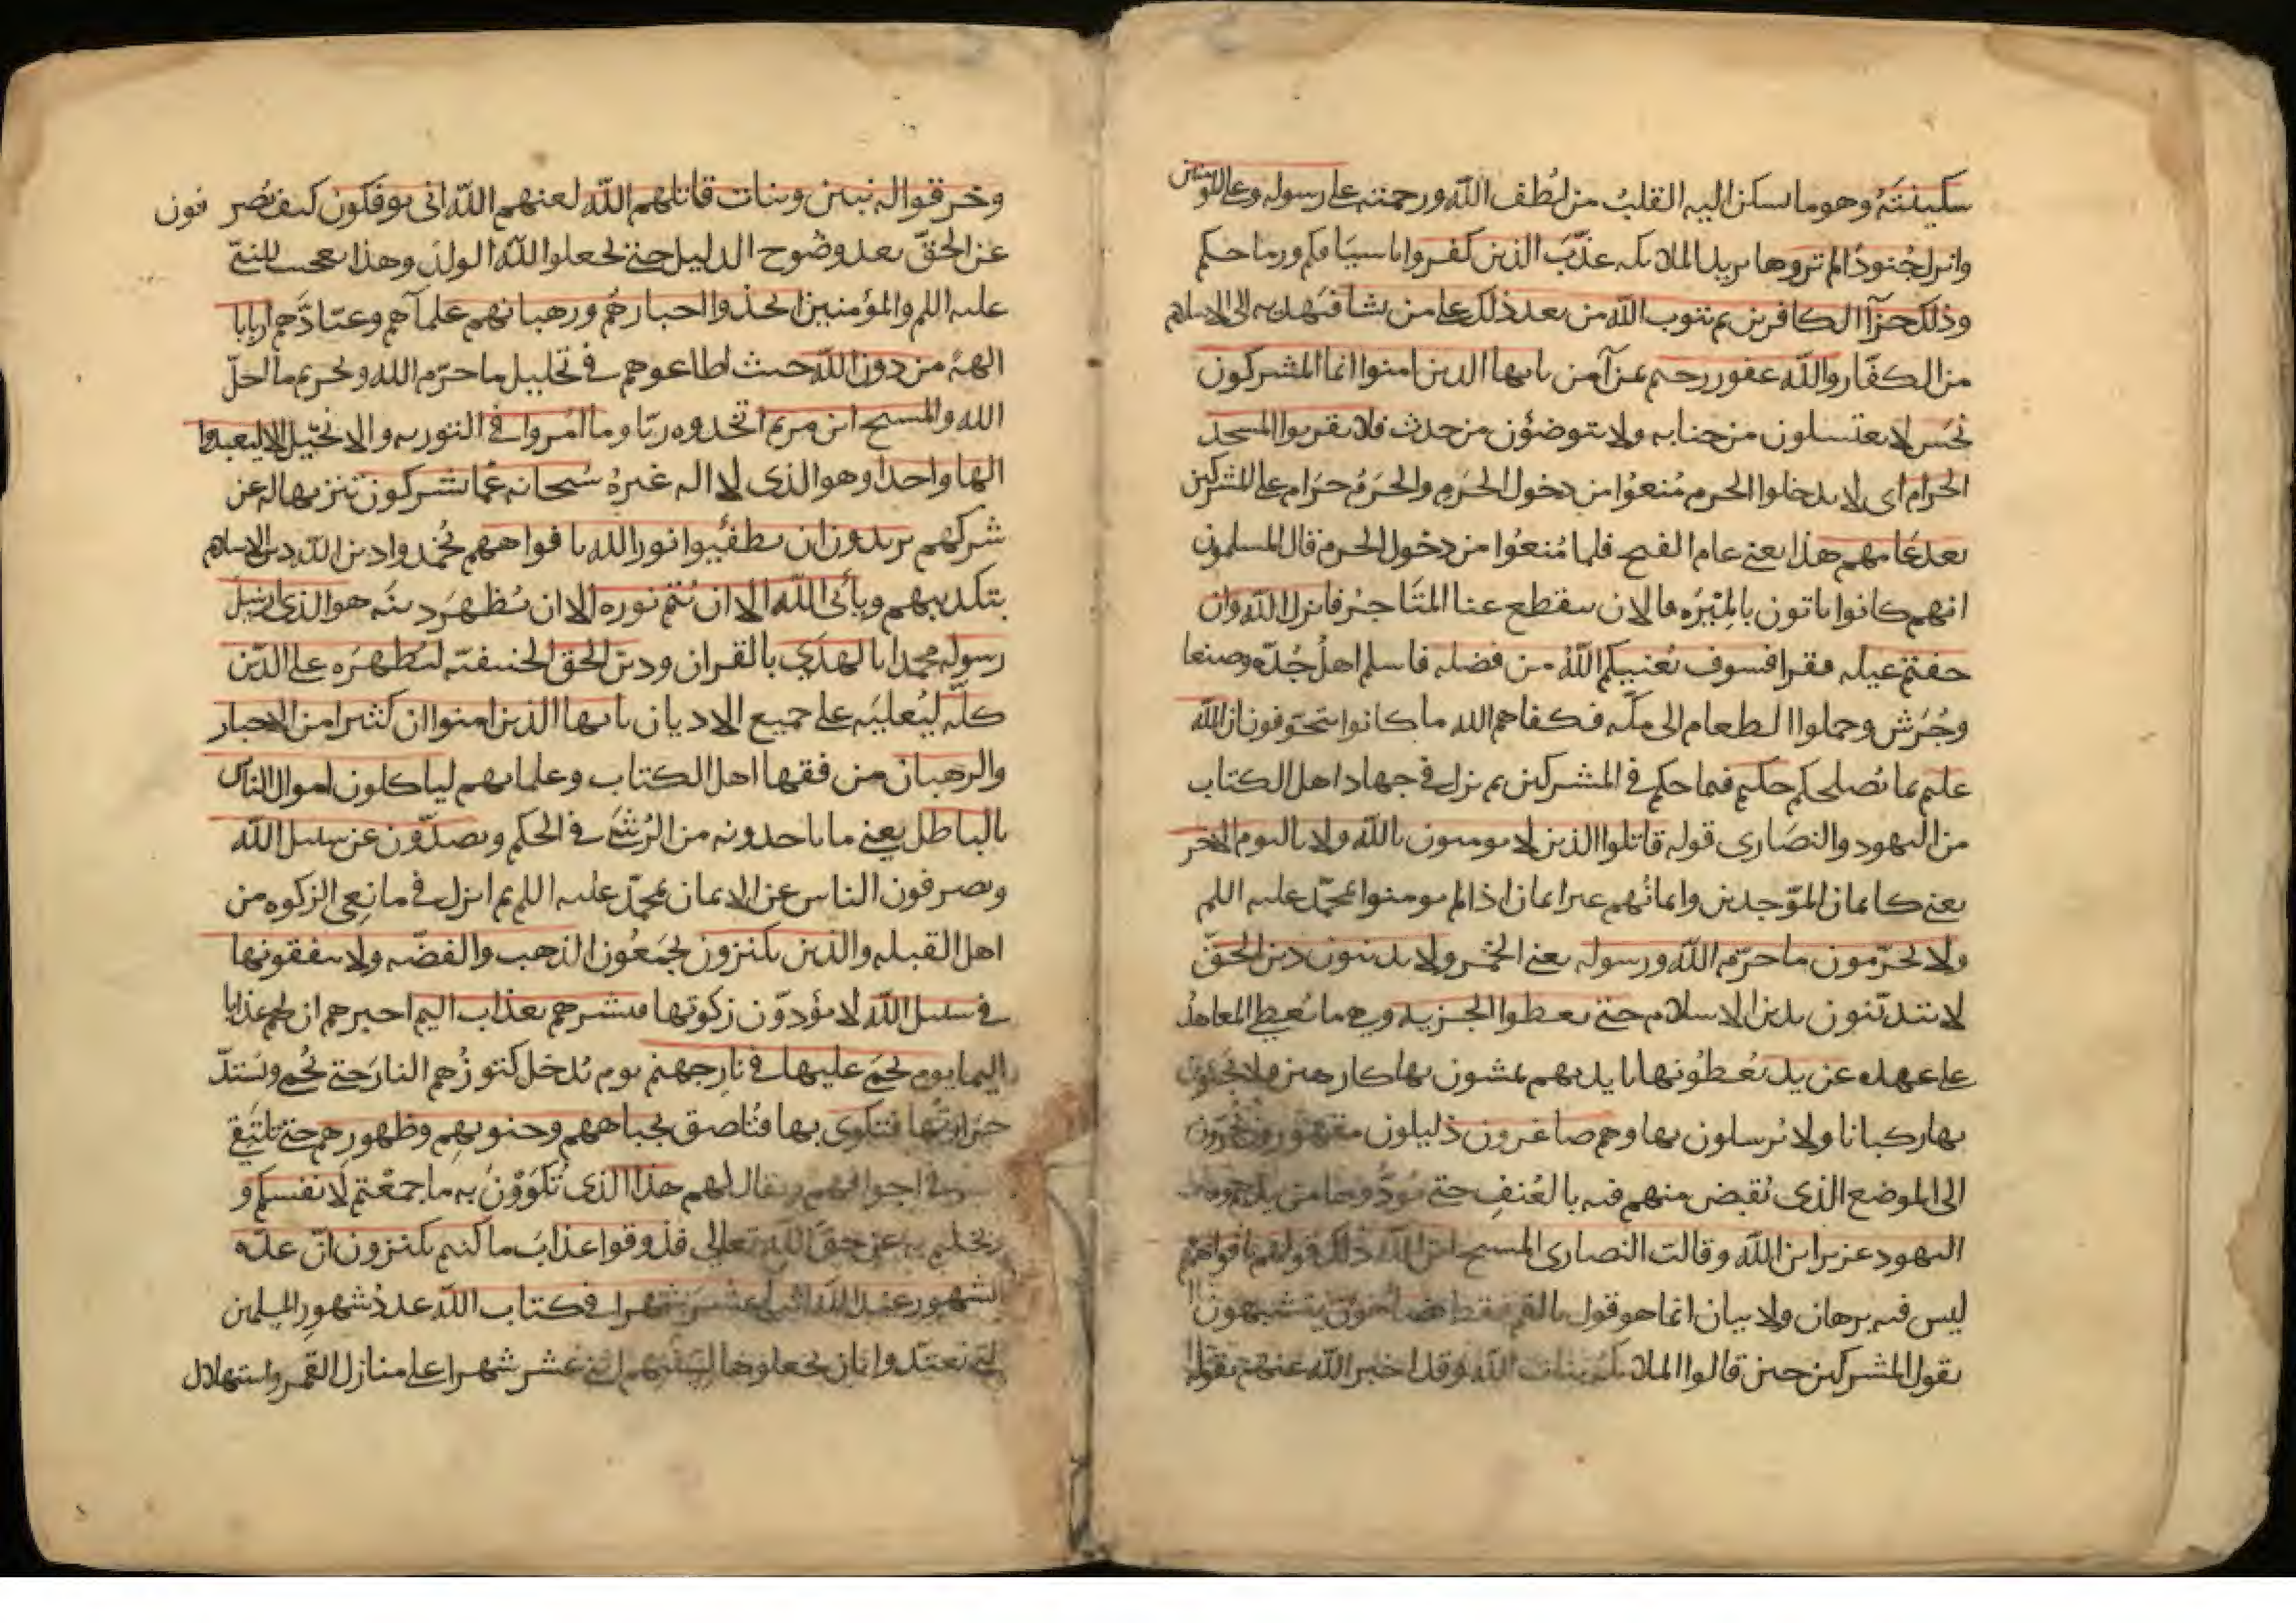 سكينته وهو ما يسكن اليه القلب من لطف الله ورحمته على رسوله وعلى المؤمنين
وانزل جنودا لم تروها يريد الملايكه عذب الذين كفروا باسيافكم ورماحكم
وذلك جزآ الكافرين ثم يتوب الله من بعد ذلك على من يشا فيهديه الى الاسلام
من الكفار والله غفور رحيم بمن آمن يا يها الذين امنوا انما المشركون
نجس لا يغتسلون من جنابه ولا يتوضؤن من حدث فلا يقربوا المسجد
الحرام اى لا يدخلوا الحرم منعوا من دخول الحرم والحرم حرام على المشركين
بعد عامهم هذا يعني عام الفتح فلما منعوا من دخول الحرم قال المسلمون
انهم كانوا ياتون بالميره فالان سقطع عنا المتاجر فانزل الله وان
خفتم عيله فقرا فسوف يغنيكم الله من فضله فاسلم اهل جده وصنعا
وجرش وحملوا الطعام الى مكه فكفاهم الله ما كانوا يتخوفون ان الله
عليم بما يصلحكم حكيم فيما حكم في المشركين ثم نزل في جهاد اهل الكتاب
من اليهود والنصارى قوله قاتلوا الذين لا يومنون بالله ولا باليوم الاخر
يعني كايمان الموحدين وايمانهم غير ايمان اذا لم يومنوا بمحمد عليه اللم
ولا يحرمون ما حرم الله ورسوله يعني الخمر ولا يدينون دين الحق
لا يتدينون بدين الاسلام حتى يعطوا الجزيه وهي ما يعطى المعاهد
على عهده عن يد يعطونها بايديهم يمشون بها كارهين ولا يجيون
بها ركبانا ولا يرسلون بها وهم صاغرون ذليلون مقهورون يجرون
الى الموضع الذى يقبض منهم فيه بالعنف حتى يودوها من يدهم وقالت
اليهود عزير ابن الله وقالت النصارى المسيح ابن الله ذلك قولهم بافواههم
ليس فيه برهان ولا بيان انما هو قول بالفم فقط يضاهؤن يتشبهون
بقول المشركين حين قالوا الملايكه بنات الله وقد اخبر الله عنهم بقوله
وخرقوا له بنين وبنات قاتلهم الله لعنهم الله انى يوفكون كيف يصر فون
عن الحق بعد وضوح الدليل حتى يجعلوا لله الولد وهذا تعجيب للنبي
عليه اللم والمؤمنين اتخذوا احبارهم ورهبانهم علمآهم وعبادهم اربابا
الهة من دون الله حيث اطاعوهم في تحليل ما حرم الله وتحريم ما احل
الله والمسيح ابن مريم اتخذوه ربا وما امروا في التوريه والانجيل الا ليعبدوا
الها واحدا وهو الذى لا اله غيره سبحانه عما يشركون تنزيها له عن
شركهم يريدون ان يطفيوا نور الله بافواههم يخمدوا دين الله دين الاسلام
بتكذيبهم ويأبى الله الا ان يتم نوره الا ان يظهر دينه هو الذي ارسل
رسوله محمدا بالهدى بالقران ودين الحق الحنيفية ليظهره على الدين
كله ليعليه على جميع الاديان يا يها الذين امنوا ان كثيرا من الاحبار
والرهبان من فقها اهل الكتاب وعلمايهم لياكلون اموال الناس
بالباطل يعني ما ياخذونه من الرشى في الحكم ويصدون عن سبيل الله
ويصرفون الناس عن الايمان بمحمد عليه اللم ثم انزل في مانعى الزكوه من
اهل القبله والذين يكنزون يجمعون الذهب والفضه ولا ينفقونها
في سبيل الله لا يؤدون زكوتها فبشرهم بعذاب اليم اخبرهم ان لهم عذابا
اليما يوم يحمى عليها في نار جهنم يوم يدخل كنوزهم النار حتى تحمى وتشتد
حرارتها فتكوى بها فتلصق بجباههم وجنوبهم وظهورهم حتى يلتقي
في اجوافهم ويقال لهم هذا الذى تكوون به ما جمعتم لانفسكم و
بخلتم به عن حق الله تعالي فذوقوا عذاب ما كنتم تكنزون ان عده
الشهور عند الله اثنا عشر شهرا في كتاب الله عدد شهور المسلمين
التي تعتدوا بان يجعلوها لسنيهم اثني عشر شهرا على منازل القمر واستهلال